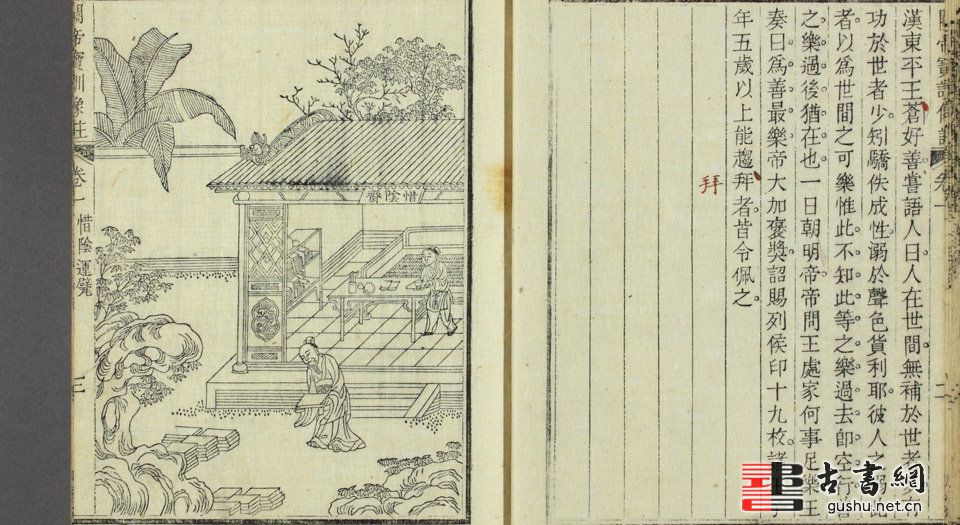 漢東平王蒼好善嘗語人曰人在世間無補於世者有
功於世者少矧驕佚成性溺於聲色貨利耶彼人之溺此
者以爲世間之可樂惟此不知此等之樂過去卽空行善
之樂過後猶在也一日朝明帝帝問王處家何事足樂王
奏曰爲善最樂帝大加褒獎詔賜列侯印十九枚諸
年五歲以上能趨拜者皆令佩之
拜
惜陰齋
關帝寶訓像註 卷一 惜陰運甓 三
古書網
gushu.net.cn